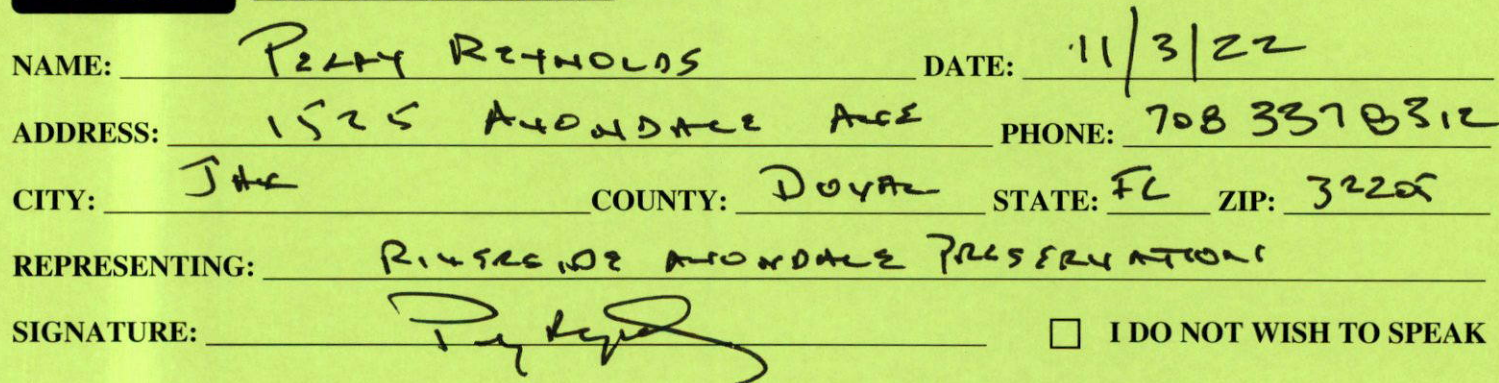 NAME: PERRY REYNOLDS DATE: 11/3/22
ADDRESS: 1525 AVONDALE AVE PHONE: 708 337 8312
CITY: JAX COUNTY: DUVAL STATE: FL ZIP: 32205
REPRESENTING: RIVERSIDE AVONDALE PRESERVATION
SIGNATURE: I DO NOT WISH TO SPEAK